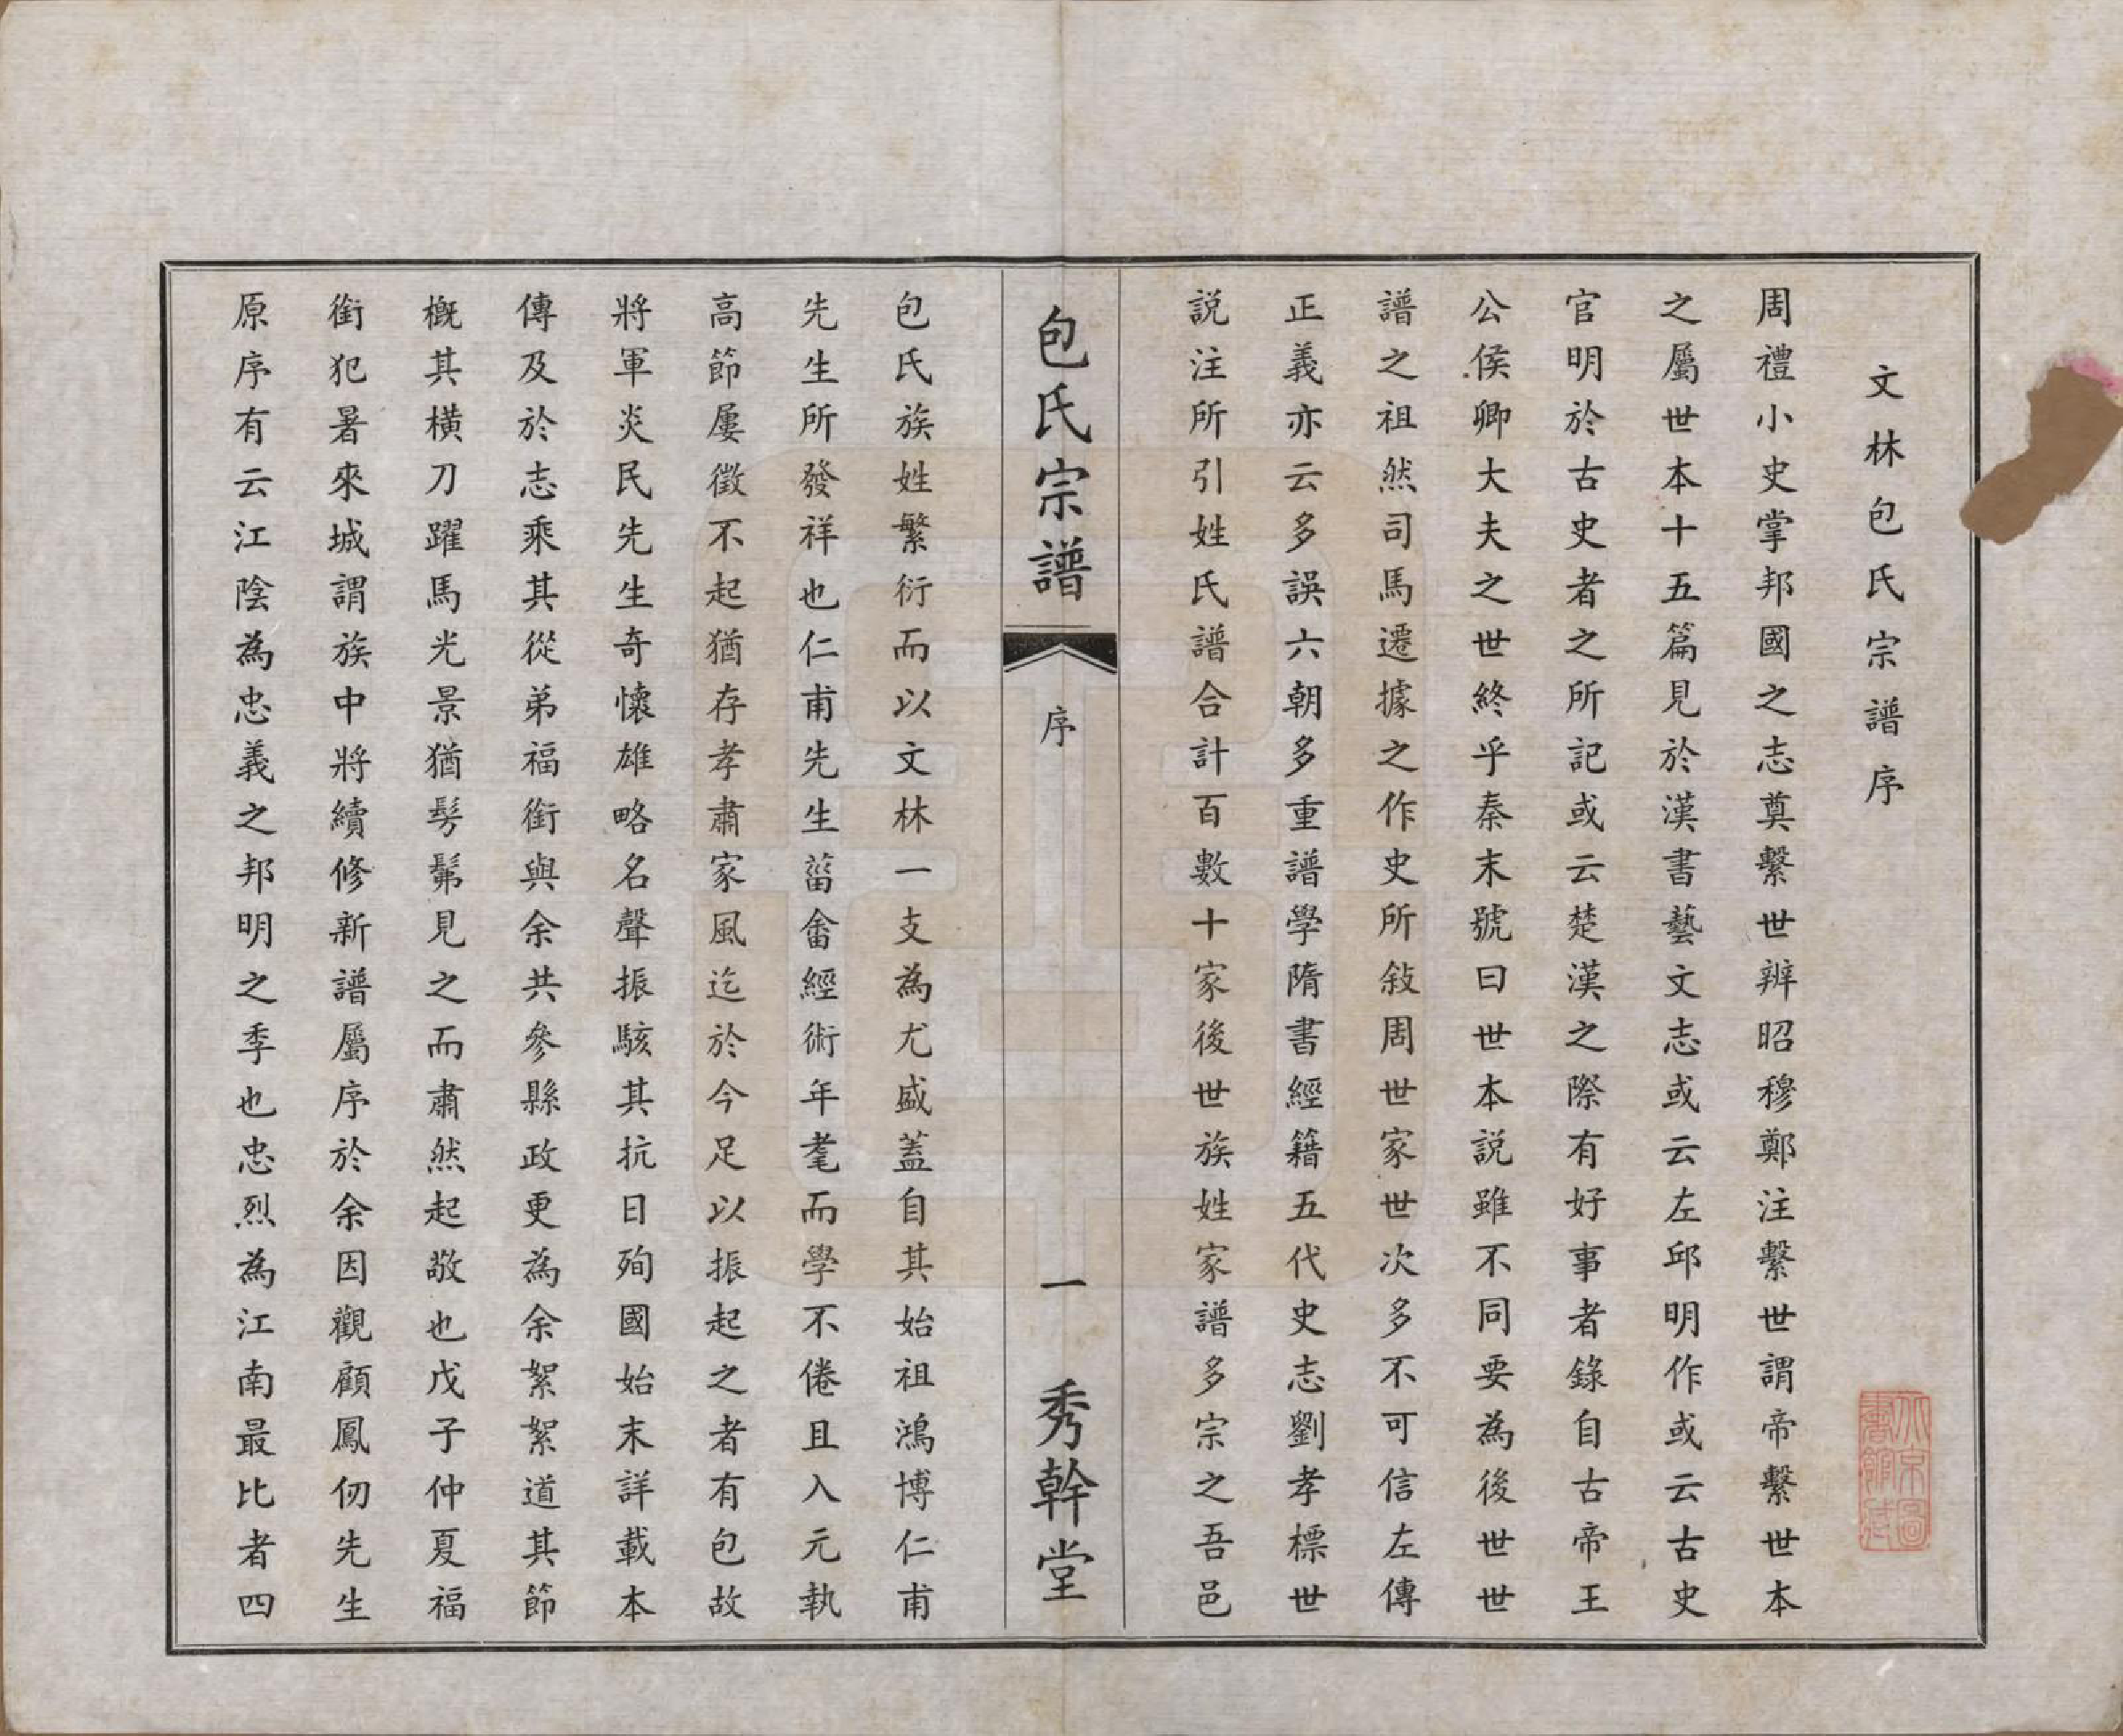 文林包氏宗譜序
周禮小史掌邦國之志奠繫世辨昭穆鄭注繫世謂帝繫世本
之屬世本十五篇見於漢書藝文志或云左邱明作或云古史
官明於古史者之所記或云楚漢之際有好事者錄自古帝王
公侯卿大夫之世終乎秦末號曰世本説雖不同要為後世世
譜之祖然司馬遷據之作史所敍周世家世次多不可信左傳
正義亦云多誤六朝多重譜學隋書經籍五代史志劉孝標世
説注所引姓氏譜合計百數十家後世族姓家譜多宗之吾邑
包氏宗譜
序
一
秀幹堂
包氏族姓繁衍而以文林一支為尤盛蓋自其始祖鴻博仁甫
先生所發祥也仁甫先生菑畬經術年耄而學不倦且入元執
高節屢徵不起猶存孝肅家風迄於今足以振起之者有包故
將軍炎民先生奇懷雄略名聲振駭其抗日殉國始末詳載本
傳及於志乘其從弟福銜與余共參縣政更為余絮絮道其節
概其橫刀躍馬光景猶髣髴見之而肅然起敬也戊子仲夏福
銜犯暑來城謂族中將續修新譜屬序於余因觀顧鳳仞先生
原序有云江陰為忠義之邦明之季也忠烈為江南最比者四